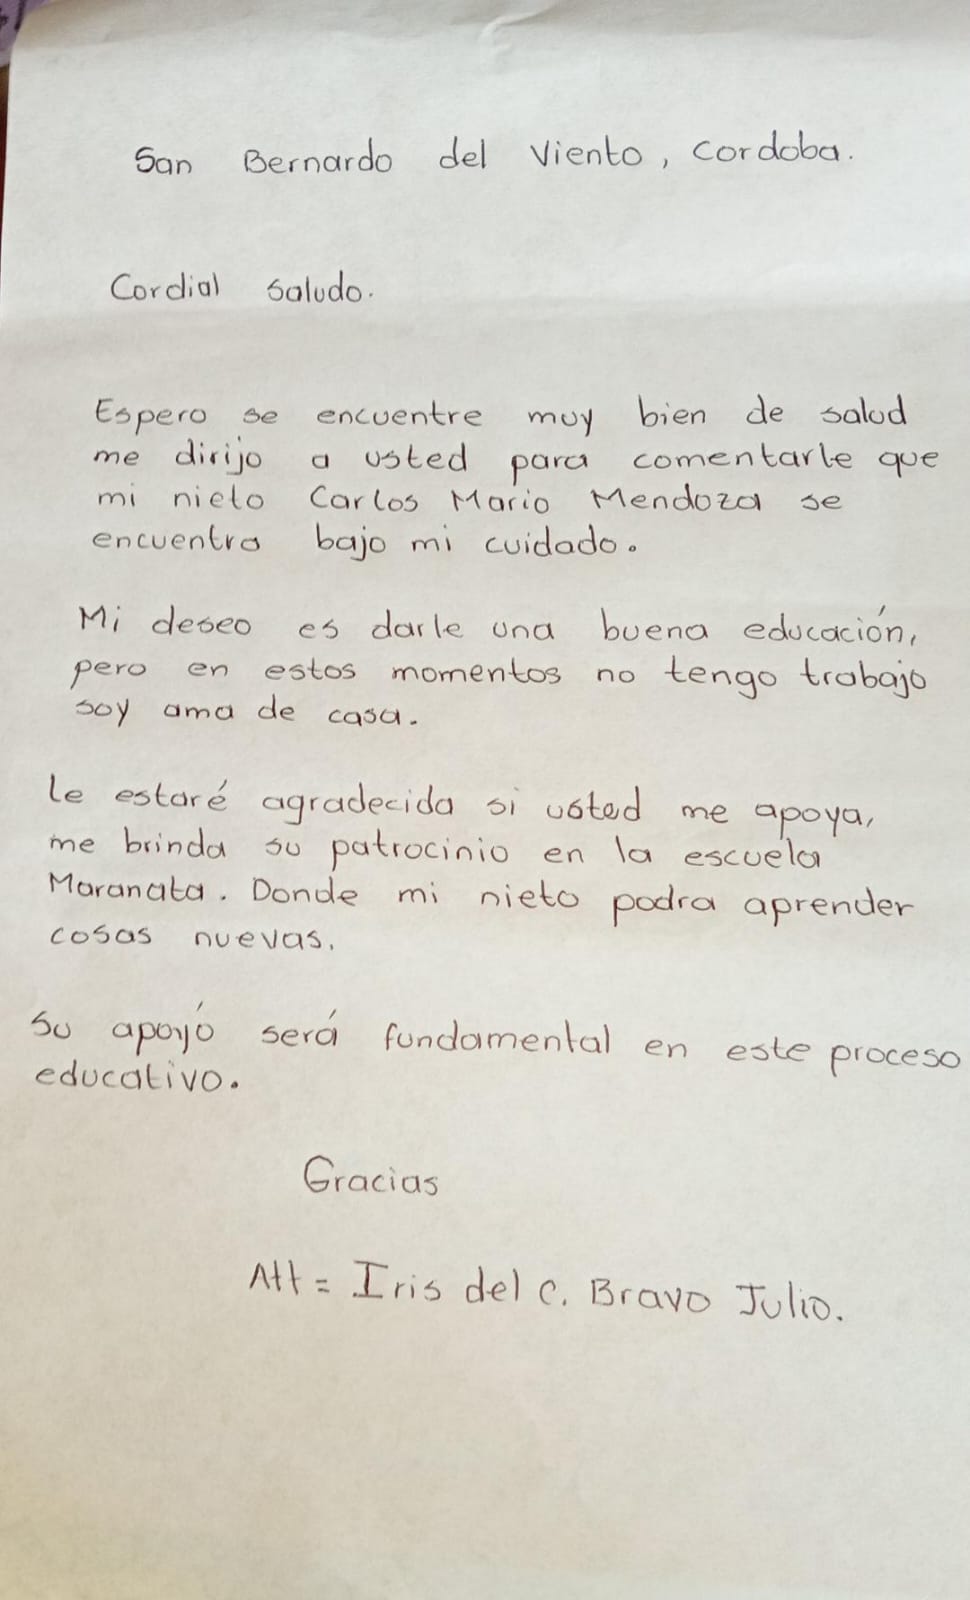 San Bernardo del Viento, Cordoba.
Cordial saludo.
Espero se encuentre muy bien de salud
me dirijo a usted para comentarle que
mi nieto Carlos Mario Mendoza se
encuentra bajo mi cuidado.
Mi deseo es darle una buena educación,
pero en estos momentos no tengo trabajo
soy ama de casa.
le estaré agradecida si usted me apoya,
me brinda su patrocinio en la escuela
Maranata. Donde mi nieto podra aprender
cosas nuevas.
Su apoyó será fundamental en este proceso
educativo.
Gracias
Att = Iris del C. Bravo Julio.